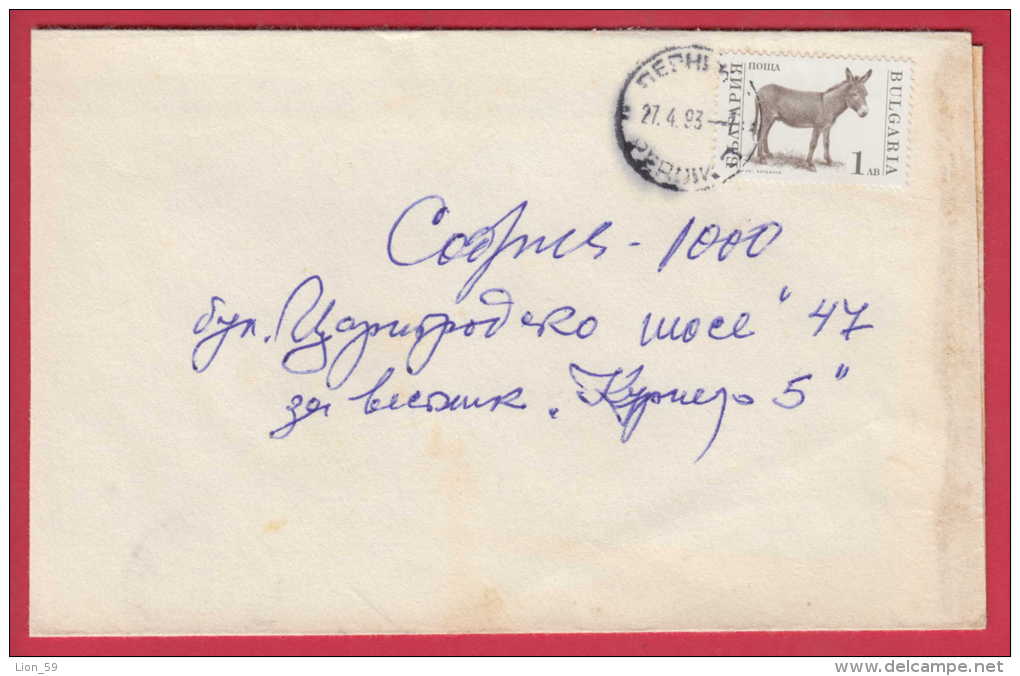 ПЕРНИК
27.4.93
PERNIK
БЪЛГАРИЯ
ПОЩА
BULGARIA
1 ЛВ
София - 1000
бул. Цариградско шосе" 47
за вестник „Куриер 5"
Lion_59
www.delcampe.net